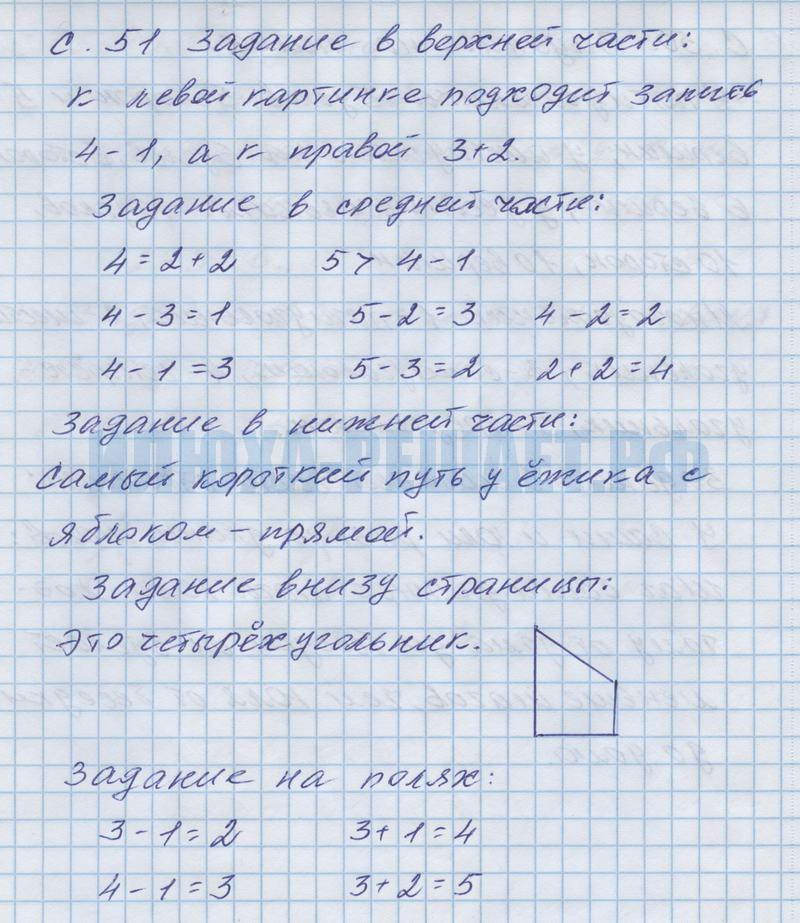 с. 51 Задание в верхней части:
К левой картинке подходит запись
4 - 1, а к правой 3 + 2.
Задание в средней части:
4 = 2 + 2 5 > 4 - 1
4 - 3 = 1 5 - 2 = 3 4 - 2 = 2
4 - 1 = 3 5 - 3 = 2 2 + 2 = 4
Задание в нижней части:
Самый короткий путь у ёжика с
яблоком - прямой.
Задание внизу страницы:
Это четырёхугольник.
Задание на полях:
3 - 1 = 2 3 + 1 = 4
4 - 1 = 3 3 + 2 = 5